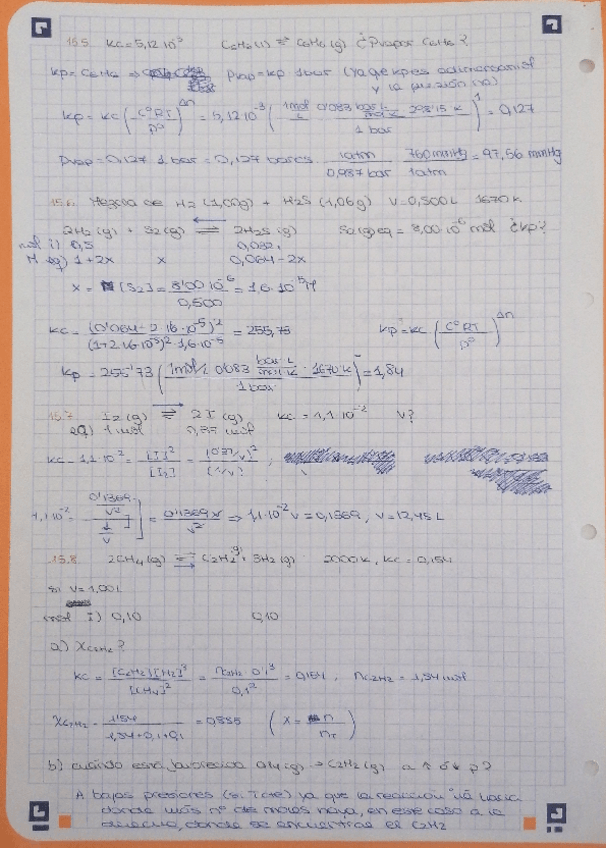 15.5. Kc = 5,12·10⁻³ C6H6(l) ⇌ C6H6(g) ¿Pvapor C6H6?
Kp = C6H6 ⇒ Pvap = Kp · 1bar (ya que Kp es adimensional
y la presión no)
Kp = Kc (C°RT/P°)^Δn = 5,12·10⁻³ (1mol/L 0'083 bar·L/mol·K · 298'15 K / 1 bar)¹ = 0,127
Pvap = 0,127 · 1 bar = 0,127 bares · 1atm/0,987 bar · 760mmHg/1atm = 97,56 mmHg
15.6. Mezcla de H2 (1,00g) + H2S (1,06g) V = 0,500L 1670K
2H2(g) + S2(g) ⇌ 2H2S(g) S2(g)eq = 8,00·10⁻⁶ mol ¿Kp?
mol i) 0,5 0,032
M eq) 1+2x x 0,064-2x
x = [S2] = 8'00·10⁻⁶/0,500 = 1,6·10⁻⁵ M
Kc = (0'064-2·1'6·10⁻⁵)²/(1+2·1'6·10⁻⁵)²·1,6·10⁻⁵ = 255,73 Kp = Kc (C°RT/P°)^Δn
Kp = 255'73 (1mol/L 0'083 bar·L/mol·K · 1670K / 1bar)⁻ = 1,84
15.7. I2(g) ⇌ 2I(g) Kc = 1,1·10⁻² V?
eq) 1 mol 0,37 mol
Kc = 1,1·10⁻² = [I]²/[I2] = (0'37/V)²/(1/V) ;
1,1·10⁻² = 0'1369/V² / 1/V = 0'1369 V/V² ⇒ 1,1·10⁻² V = 0,1369, V = 12,45 L
15.8. 2CH4(g) ⇌ C2H2(g) + 3H2(g) 2000K, Kc = 0,154
si V = 1,00L
mol i) 0,10 0,10
a) XC2H2?
Kc = [C2H2][H2]³/[CH4]² = nC2H2 · 0'1³/0,1² = 0,154 , nC2H2 = 1,54 mol
XC2H2 = 1'54/1,54+0,1+0,1 = 0,885 (X = n/nT)
b) cuándo está favorecida CH4(g) → C2H2(g) a ↑ ó ↓ p?
A bajas presiones (si T cte) ya que la reacción irá hacia
donde más nº de moles haya, en este caso a la
derecha, donde se encuentra el C2H2